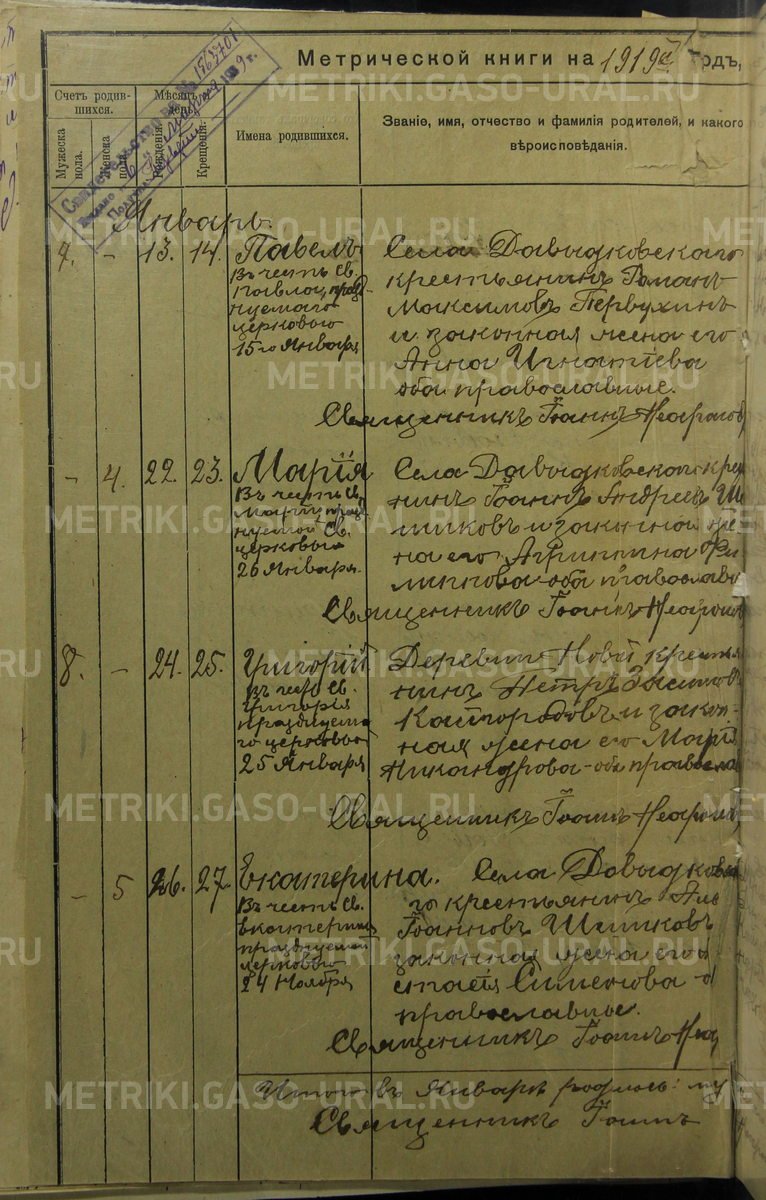 Метрической книги на 1919й годъ,
Счетъ родив-
шихся.
Мужеска
пола.
Женска
пола.
Мѣсяцъ
день.
Рожденія.
Крещенія.
Имена родившихся.
Званіе, имя, отчество и фамилія родителей, и какого
вѣроисповѣданія.
Свидетельство № 1765701
Январь.
7. - 13. 14. Павелъ
Въ честь Св.
Павла, празд-
нуемаго
церковью
15го Января
Села Давыдковскаго
крестьянинъ Романъ
Максимовъ Первухинъ
и законная жена его
Анна Игнатіева
оба православные.
Священникъ Іоаннъ
- 4. 22. 23. Марія
Въ честь Св.
Маріи, празд
нуемой Св.
церковью
26 Января.
Села Давыдковскаго крес
нинъ Іоаннъ Андреевъ Ши
шковъ и законная же
на его Агриппина Фи
липпова - оба православ
Священникъ Іоаннъ
8. - 24. 25. Григорій
Въ честь Св.
Григорія
празднуема
го церковью
25 Января
Деревни Новой крестья
нинъ Петръ
Кайгородовъ и закон-
ная жена его Марія
Никандрова - оба правосла
Священникъ Іоаннъ
- 5 26. 27 Екатерина.
Въ честь Св.
Екатерины
празднуемой
церковью
24 Ноября
Села Давыдковска
го крестьянинъ
Іоанновъ Шишковъ
законная жена его
стасія Симеонова - о
православные.
Священникъ Іоаннъ
Итого въ Январѣ родилось: му
Священникъ Іоаннъ
METRIKI.GASO-URAL.RU